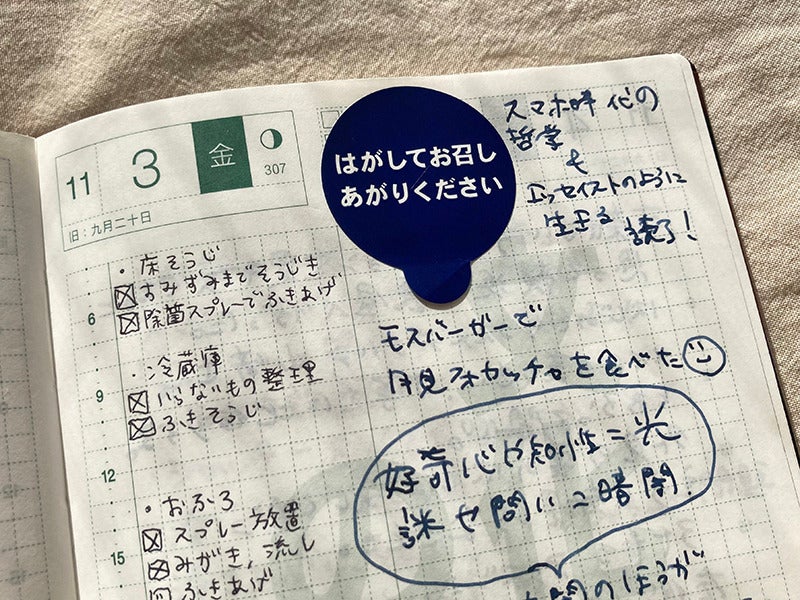 11
3
金
307
旧：九月二十日
・床そうじ
すみずみまでそうじき
除菌スプレーでふきあげ
6
・冷蔵庫
いらないもの整理
ふきそうじ
9
12
・おふろ
スプレー放置
みがき、流し
ふきあげ
15
はがしてお召し
あがりください
スマホ時代の
哲学
と
エッセイストのように
生きる
読了！
モスバーガーで
月見フォカッチャを食べた
好奇心や知性＝光
謎や問い＝暗闇
のほうが